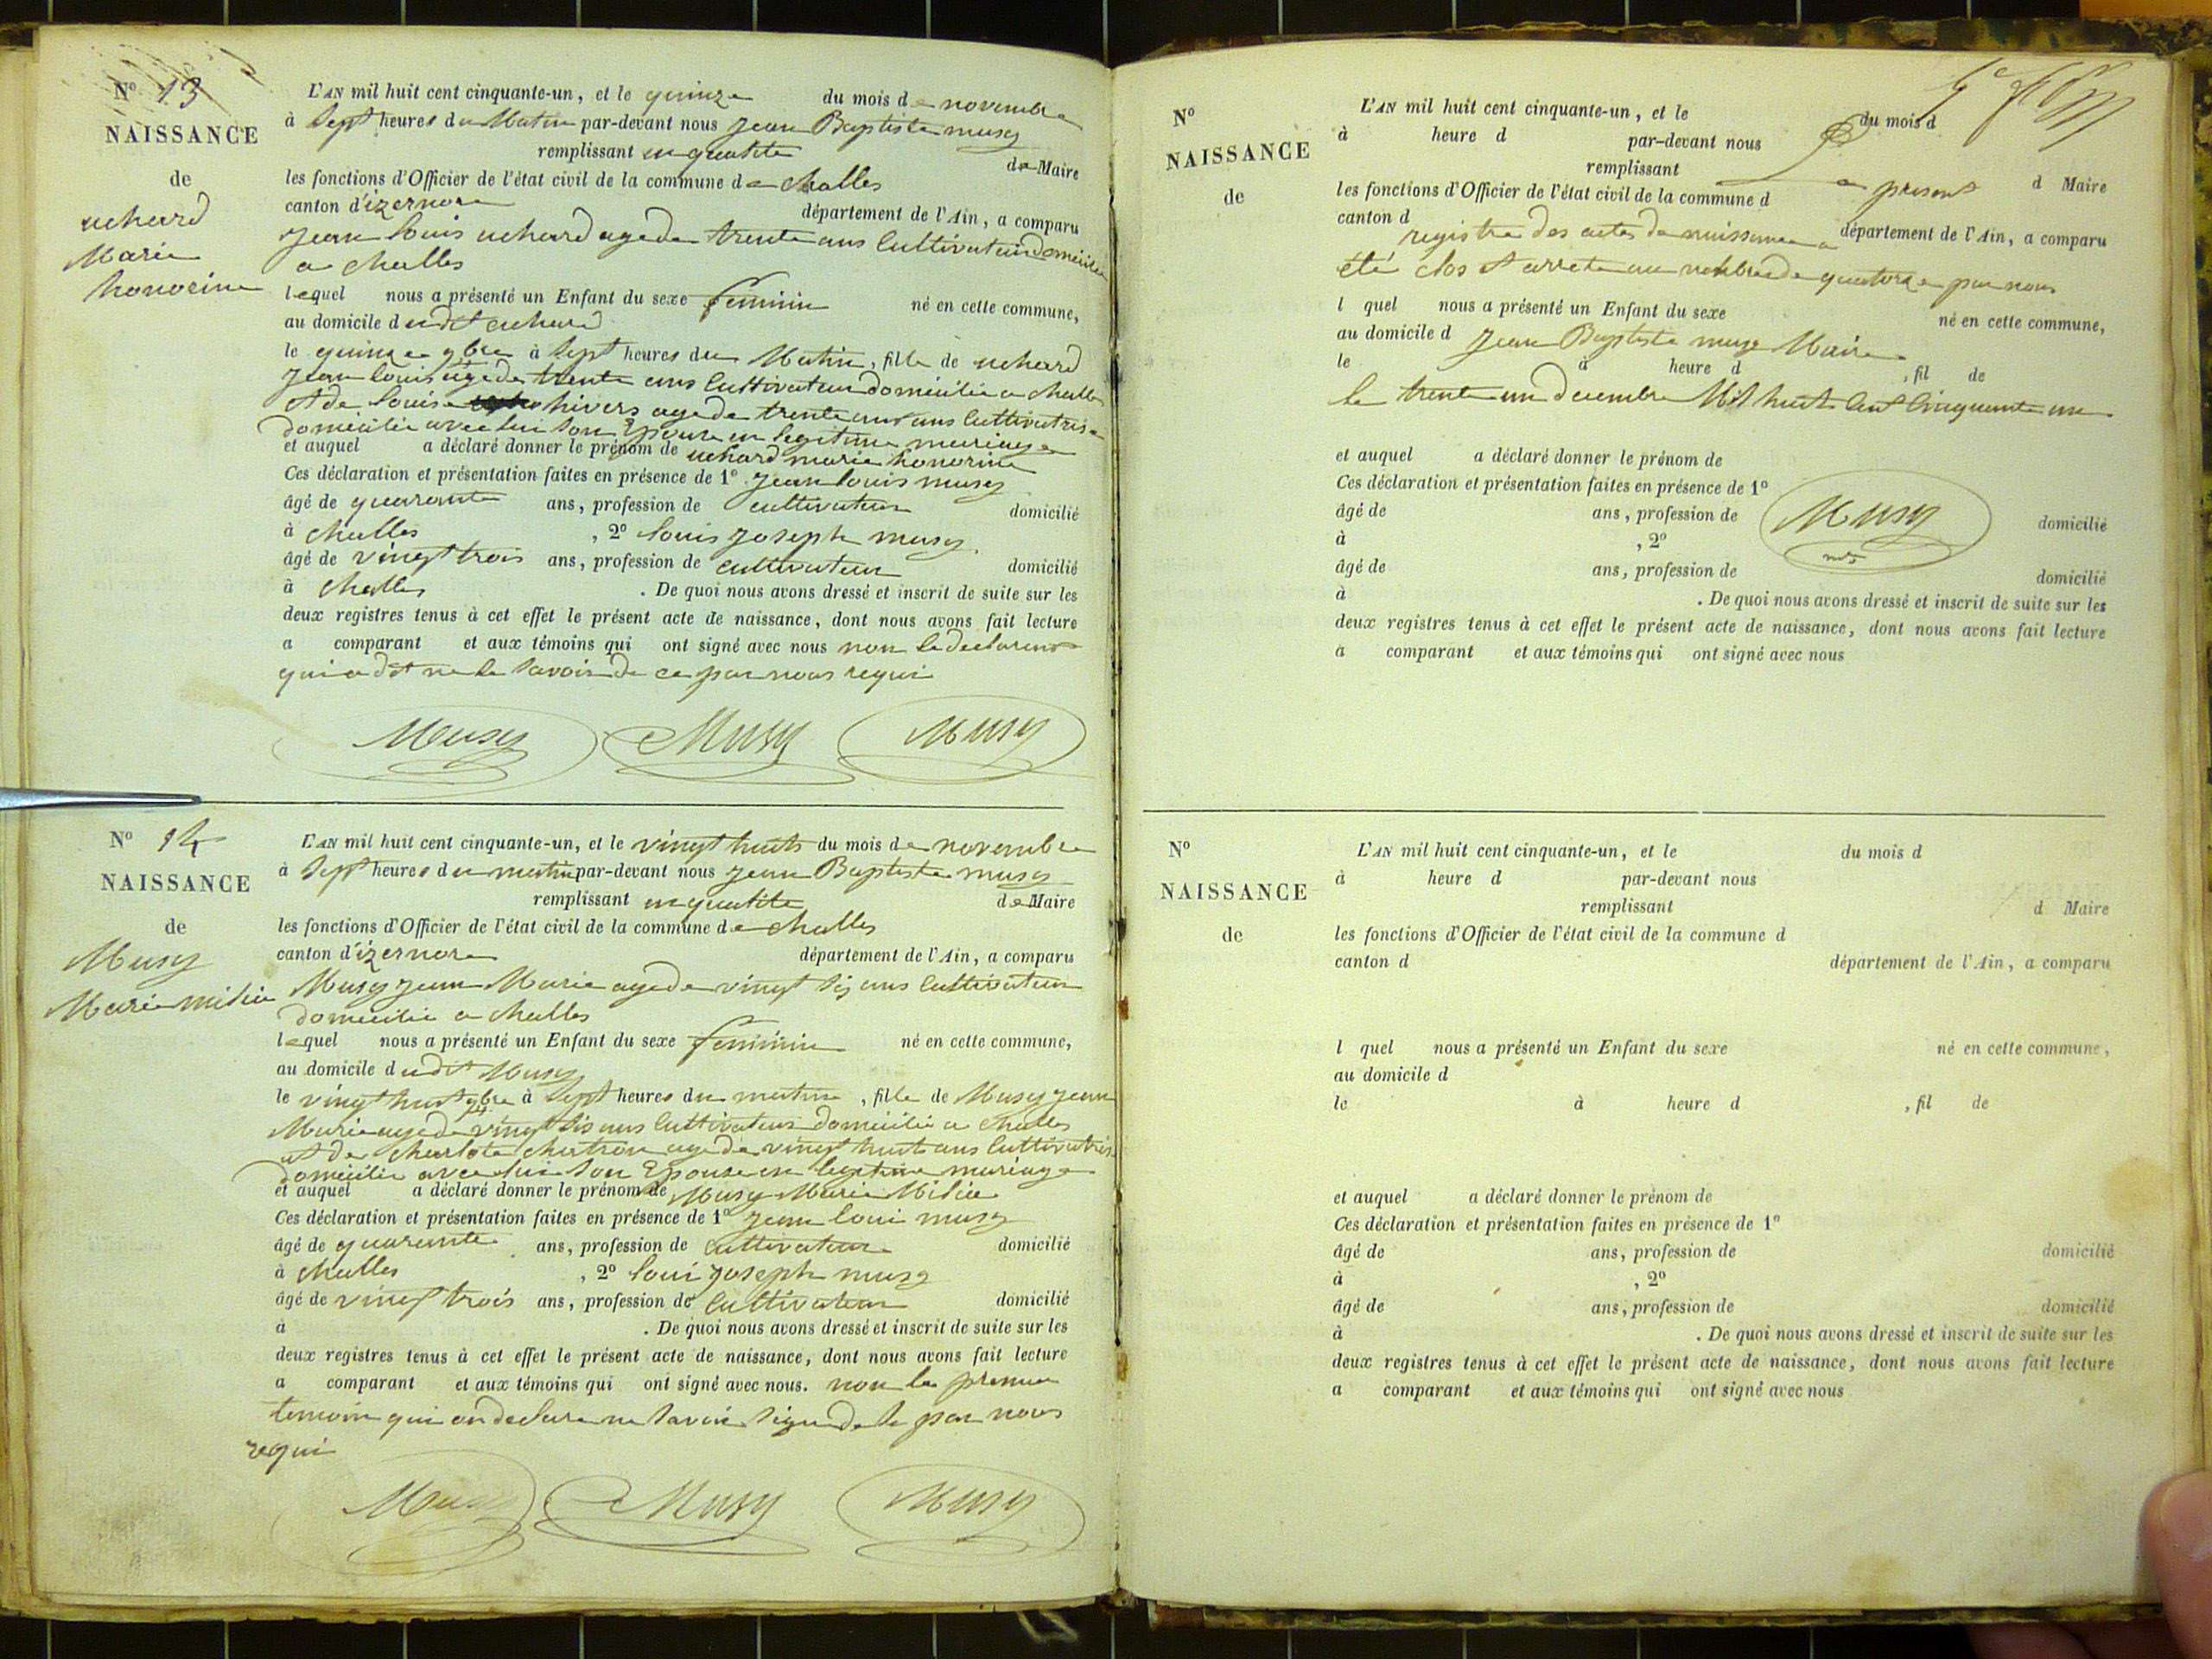 Nº 13
NAISSANCE
de
uchard
Marie
honorine
L'AN mil huit cent cinquante-un, et le quinze du mois de novembre
à Sept heures du Matin par-devant nous Jean Baptiste musy
remplissant en qualite de Maire
les fonctions d'Officier de l'état civil de la commune de challes
canton d'izernore département de l'Ain, a comparu
Jean louis uchard age de trente ans Cultivateur domicilie
a challes
lequel nous a présenté un Enfant du sexe feminin né en cette commune,
au domicile dudit uchard
le quinze 9bre à Sept heures du Matin, fille de uchard
Jean louis age de trente ans Cultivateur domicilie a challes
et de louise hivers age de trente ans Cultivatrise
domicilie avec lui Son Epouse en legitime mariage
et auquel a déclaré donner le prénom de uchard marie honorine
Ces déclaration et présentation faites en présence de 1º Jean louis musy
âgé de quarante ans, profession de cultivateur domicilié
à challes , 2º louis Joseph musy
âgé de vingt trois ans, profession de cultivateur domicilié
à challes . De quoi nous avons dressé et inscrit de suite sur les
deux registres tenus à cet effet le présent acte de naissance, dont nous avons fait lecture
a comparant et aux témoins qui ont signé avec nous non le declarant
qui a dit ne le Savoir de ce par nous requi
Musy Musy Musy
Nº 14
NAISSANCE
de
Musy
Marie
L'AN mil huit cent cinquante-un, et le vingt huit du mois de novembre
à Sept heures du matin par-devant nous Jean Baptiste musy
remplissant en qualite de Maire
les fonctions d'Officier de l'état civil de la commune de challes
canton d'izernore département de l'Ain, a comparu
Musy Jean Marie age de vingt Sis ans Cultivateur
domicilie a challes
lequel nous a présenté un Enfant du sexe feminin né en cette commune,
au domicile dudit Musy
le vingt huit 9bre à Sept heures du matin, fille de Musy Jean
Marie age de vingt Sis ans Cultivateur domicilie a challes
et de charlote age de vingt huit ans Cultivatris
domicilie avec lui Son Epouse en legitime mariage
et auquel a déclaré donner le prénom de Musy Marie
Ces déclaration et présentation faites en présence de 1º Jean loui musy
âgé de quarante ans, profession de cultivateur domicilié
à challes , 2º loui Joseph musy
âgé de vingt trois ans, profession de Cultivateur domicilié
à . De quoi nous avons dressé et inscrit de suite sur les
deux registres tenus à cet effet le présent acte de naissance, dont nous avons fait lecture
a comparant et aux témoins qui ont signé avec nous. non le premie
temoin qui on declare ne Savoir Signe de Se par nous
requi
Musy Musy Musy
Nº
NAISSANCE
de
L'AN mil huit cent cinquante-un, et le du mois d
à heure d par-devant nous
remplissant d Maire
le present
les fonctions d'Officier de l'état civil de la commune d
canton d département de l'Ain, a comparu
registre des actes de naissance a
été clos et arrete au nombre de quatorze par nous
l quel nous a présenté un Enfant du sexe né en cette commune,
au domicile d Jean Baptiste musy Maire
le à heure d , fil de
le trente un decembre Mil huit Cent Cinquante un
et auquel a déclaré donner le prénom de
Ces déclaration et présentation faites en présence de 1º
Musy
âgé de ans, profession de domicilié
à , 2º
âgé de ans, profession de domicilié
à . De quoi nous avons dressé et inscrit de suite sur les
deux registres tenus à cet effet le présent acte de naissance, dont nous avons fait lecture
a comparant et aux témoins qui ont signé avec nous
Nº
NAISSANCE
de
L'AN mil huit cent cinquante-un, et le du mois d
à heure d par-devant nous
remplissant d Maire
les fonctions d'Officier de l'état civil de la commune d
canton d département de l'Ain, a comparu
l quel nous a présenté un Enfant du sexe né en cette commune,
au domicile d
le à heure d , fil de
et auquel a déclaré donner le prénom de
Ces déclaration et présentation faites en présence de 1º
âgé de ans, profession de domicilié
à , 2º
âgé de ans, profession de domicilié
à . De quoi nous avons dressé et inscrit de suite sur les
deux registres tenus à cet effet le présent acte de naissance, dont nous avons fait lecture
a comparant et aux témoins qui ont signé avec nous